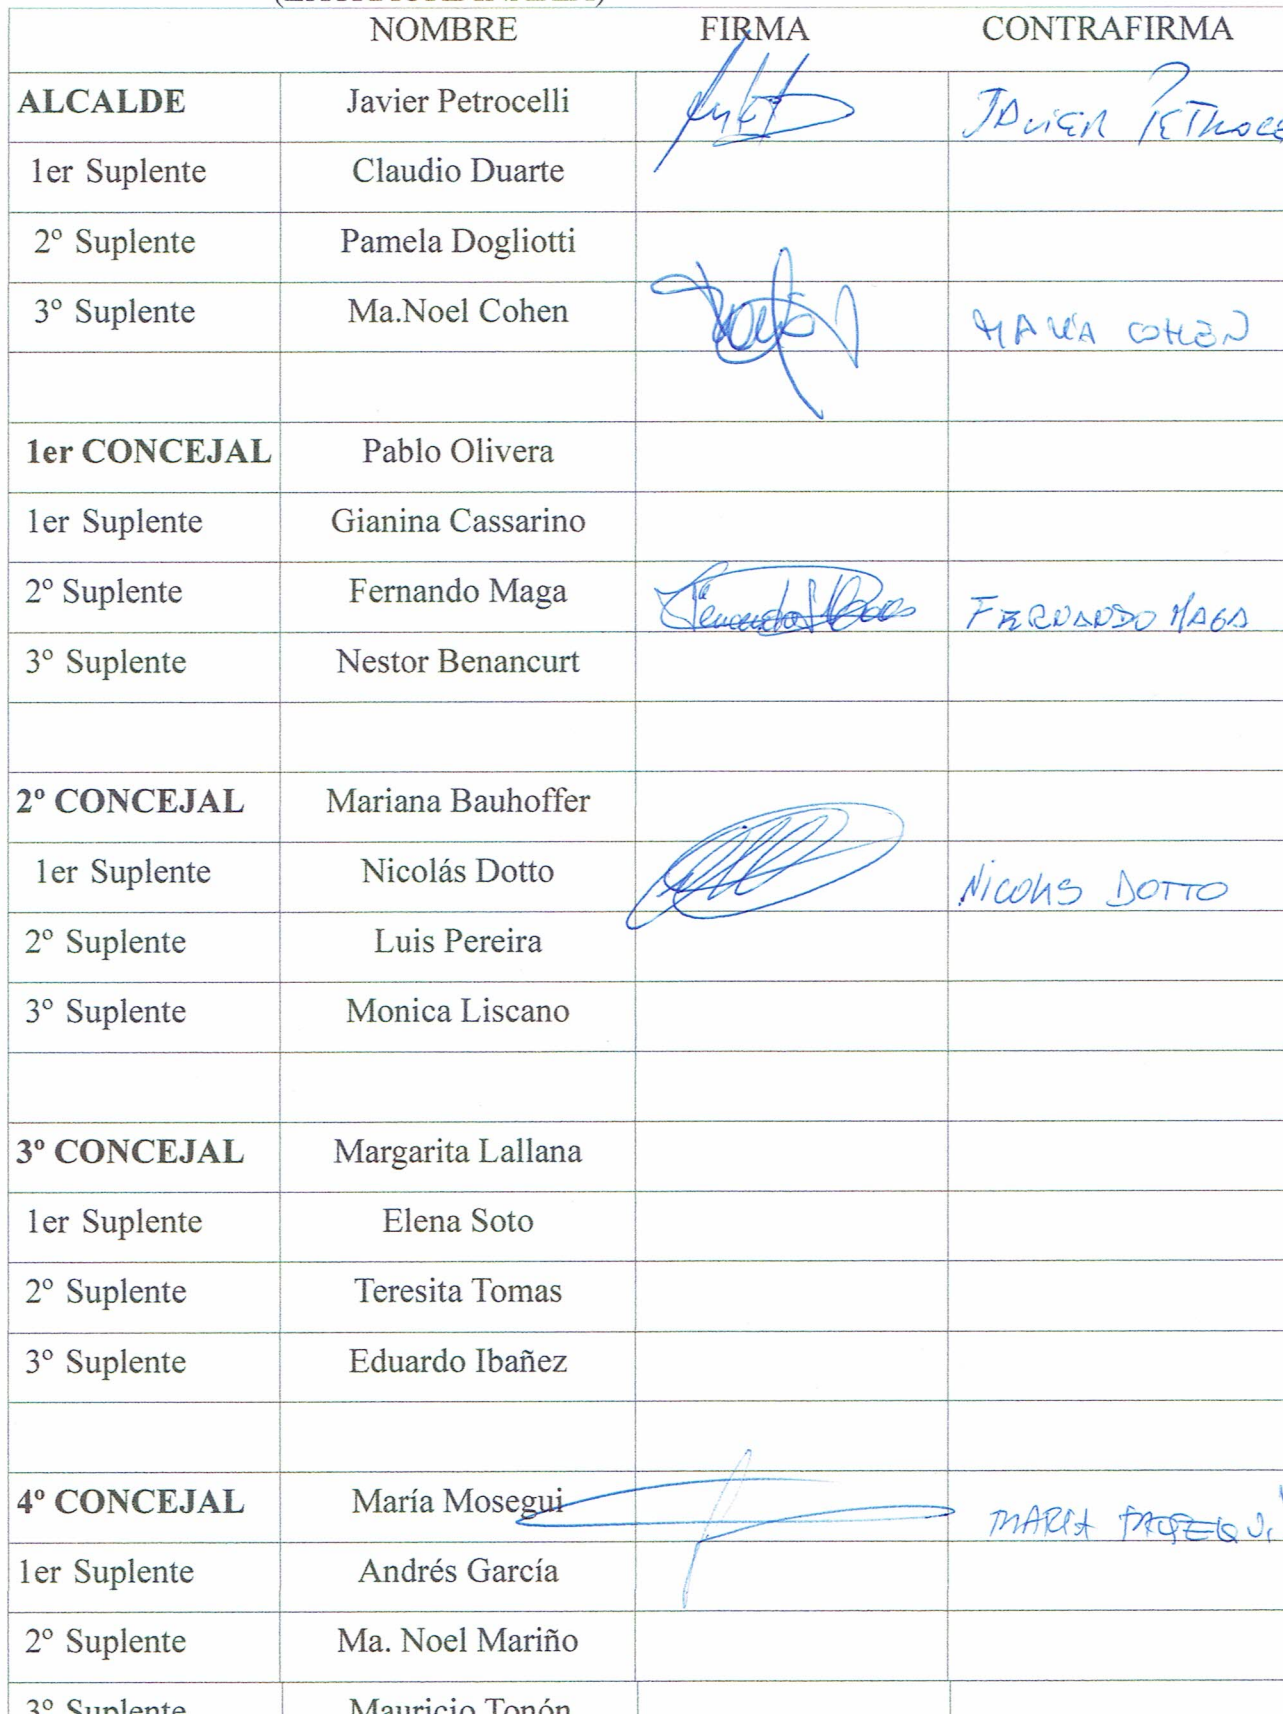 NOMBRE FIRMA CONTRAFIRMA
ALCALDE Javier Petrocelli JAVIER PETROCE
1er Suplente Claudio Duarte
2º Suplente Pamela Dogliotti
3º Suplente Ma.Noel Cohen MARÍA COHEN
1er CONCEJAL Pablo Olivera
1er Suplente Gianina Cassarino
2º Suplente Fernando Maga FERNANDO MAGA
3º Suplente Nestor Benancurt
2º CONCEJAL Mariana Bauhoffer
1er Suplente Nicolás Dotto NICOLAS DOTTO
2º Suplente Luis Pereira
3º Suplente Monica Liscano
3º CONCEJAL Margarita Lallana
1er Suplente Elena Soto
2º Suplente Teresita Tomas
3º Suplente Eduardo Ibañez
4º CONCEJAL María Mosegui MARIA
1er Suplente Andrés García
2º Suplente Ma. Noel Mariño
3º Suplente Mauricio Tonón